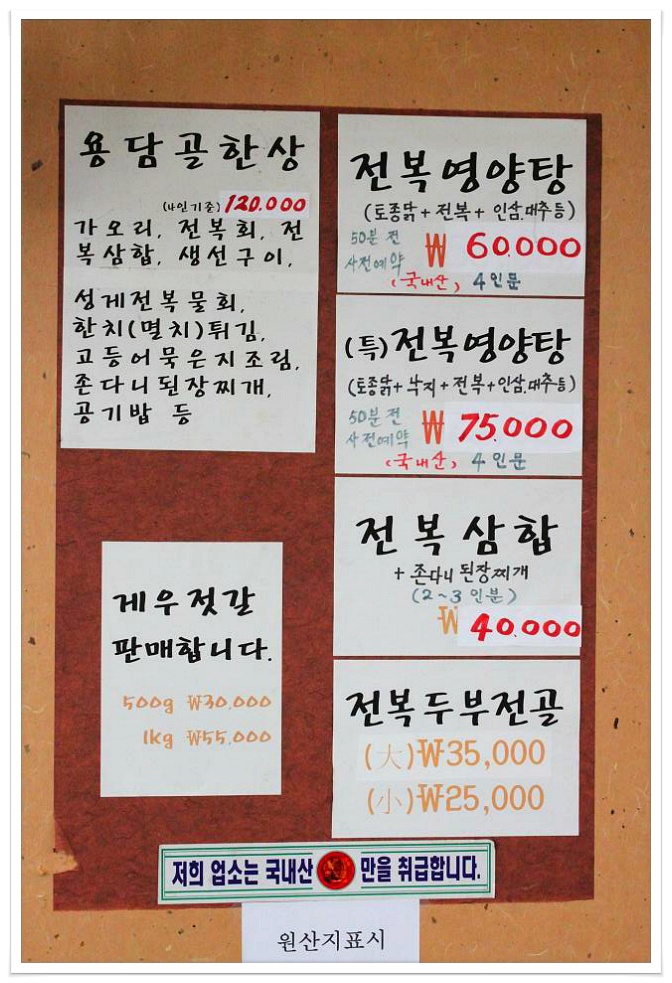 용담골한상
(4인기준) 120.000
가오리, 전복회, 전
복삼합, 생선구이,
성게전복물회,
한치(멸치)튀김,
고등어묵은지조림,
존다니된장찌개,
공기밥 등
게우젓갈
판매합니다.
500g ₩30,000
1kg ₩55,000
전복영양탕
(토종닭+전복+인삼.대추등)
50분 전
사전예약
₩ 60.000
(국내산) 4인문
(특)전복영양탕
(토종닭+낙지+전복+인삼.대추등)
50분 전
사전예약
₩ 75.000
(국내산) 4인문
전복삼합
+ 존다니 된장찌개
(2~3인분)
₩ 40.000
전복두부전골
(大)₩35,000
(小)₩25,000
저희 업소는 국내산 만을 취급합니다.
원산지표시